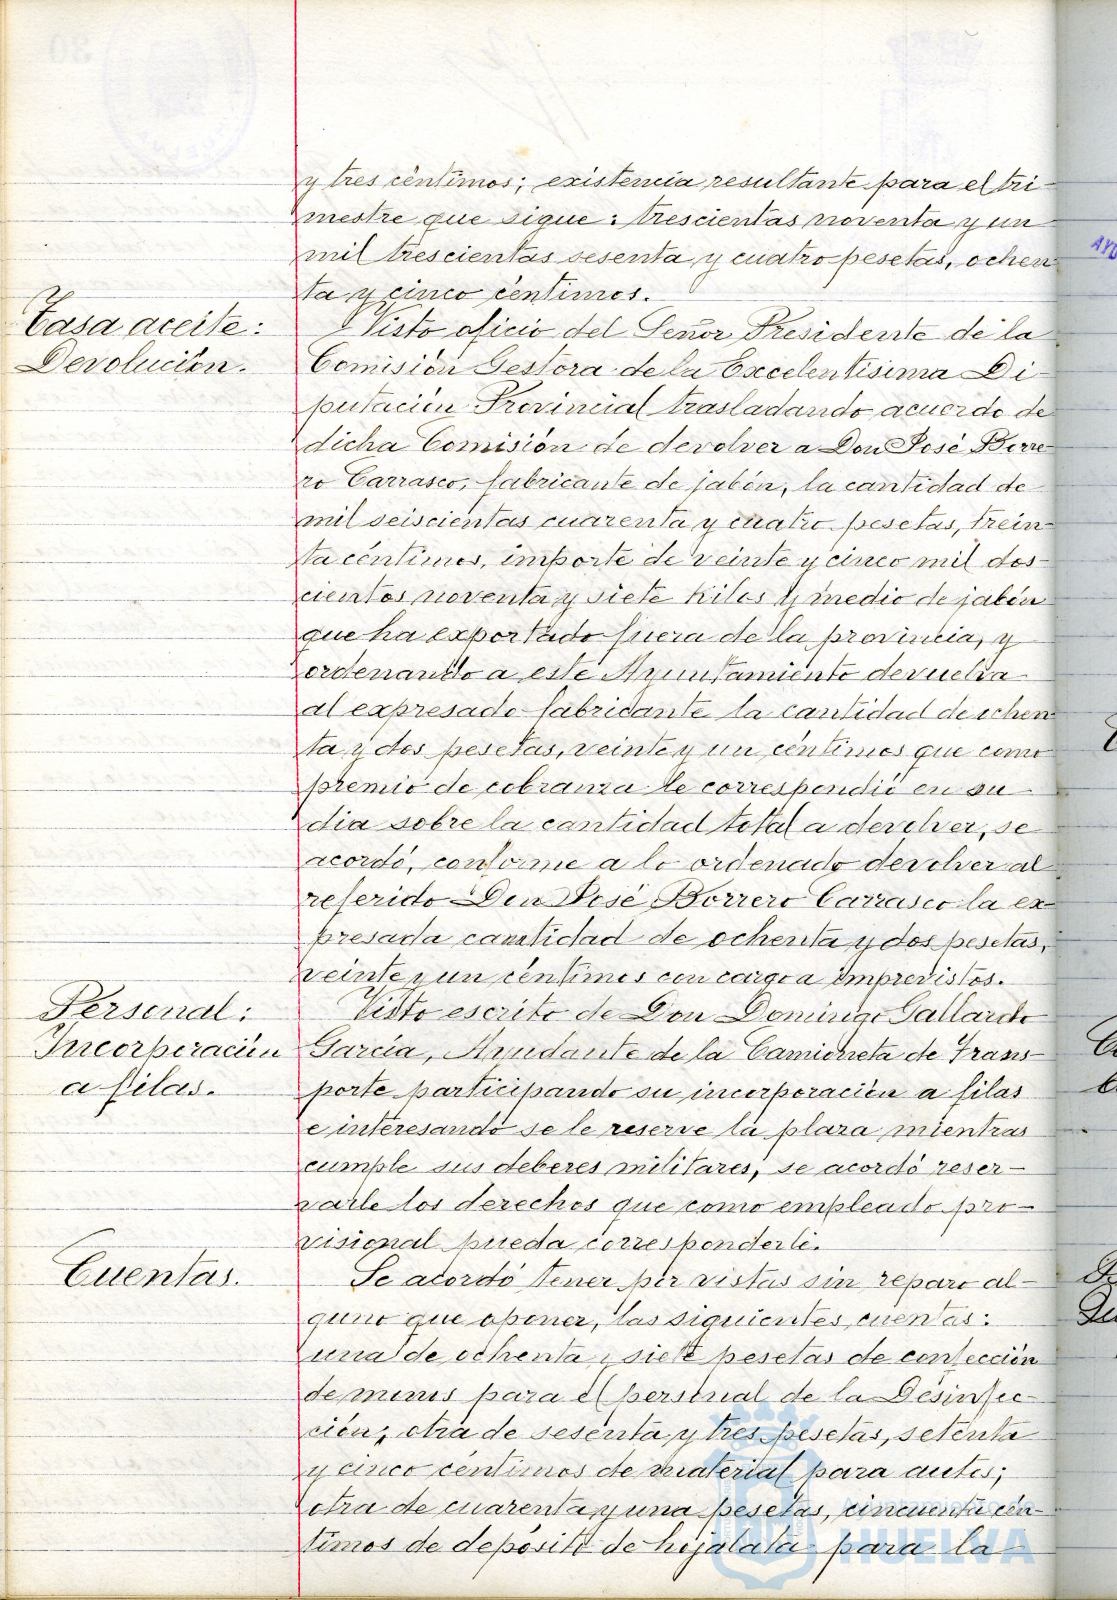 y tres céntimos; existencia resultante para el tri-
mestre que sigue: trescientas noventa y un
mil trescientas sesenta y cuatro pesetas, ochen
ta y cinco céntimos.
Tasa aceite:
Devolución.
Visto oficio del Señor Presidente de la
Comisión Gestora de la Excelentisima Di-
putación Provincial trasladando acuerdo de
dicha Comisión de devolver a Don José Borre-
ro Carrasco, fabricante de jabón, la cantidad de
mil seiscientas cuarenta y cuatro pesetas, trein-
ta céntimos, importe de veinte y cinco mil dos-
cientos noventa y siete kilos y medio de jabón
que ha exportado fuera de la provincia, y
ordenando a este Ayuntamiento devuelva
al expresado fabricante la cantidad de ochen
ta y dos pesetas, veinte y un céntimos que como
premio de cobranza le correspondió en su
dia sobre la cantidad total a devolver, se
acordó, conforme a lo ordenado devolver al
referido Don José Borrero Carrasco la ex-
presada cantidad de ochenta y dos pesetas,
veinte y un céntimos con cargo a imprevistos.
Personal:
Incorporación
a filas.
Visto escrito de Don Domingo Gallardo
García, Ayudante de la Camioneta de Trans-
porte participando su incorporación a filas
e interesando se le reserve la plaza mientras
cumple sus deberes militares, se acordó reser-
varle los derechos que como empleado pro-
visional pueda corresponderle.
Cuentas.
Se acordó tener por vistas sin reparo al-
guno que oponer, las siguientes cuentas:
una de ochenta y siete pesetas de confección
de monos para el personal de la Desinfec-
ción; otra de sesenta y tres pesetas, setenta
y cinco céntimos de material para autos;
otra de cuarenta y una pesetas, cincuenta cén-
timos de depósito de hojalata para la
Ayuntamiento de
HUELVA